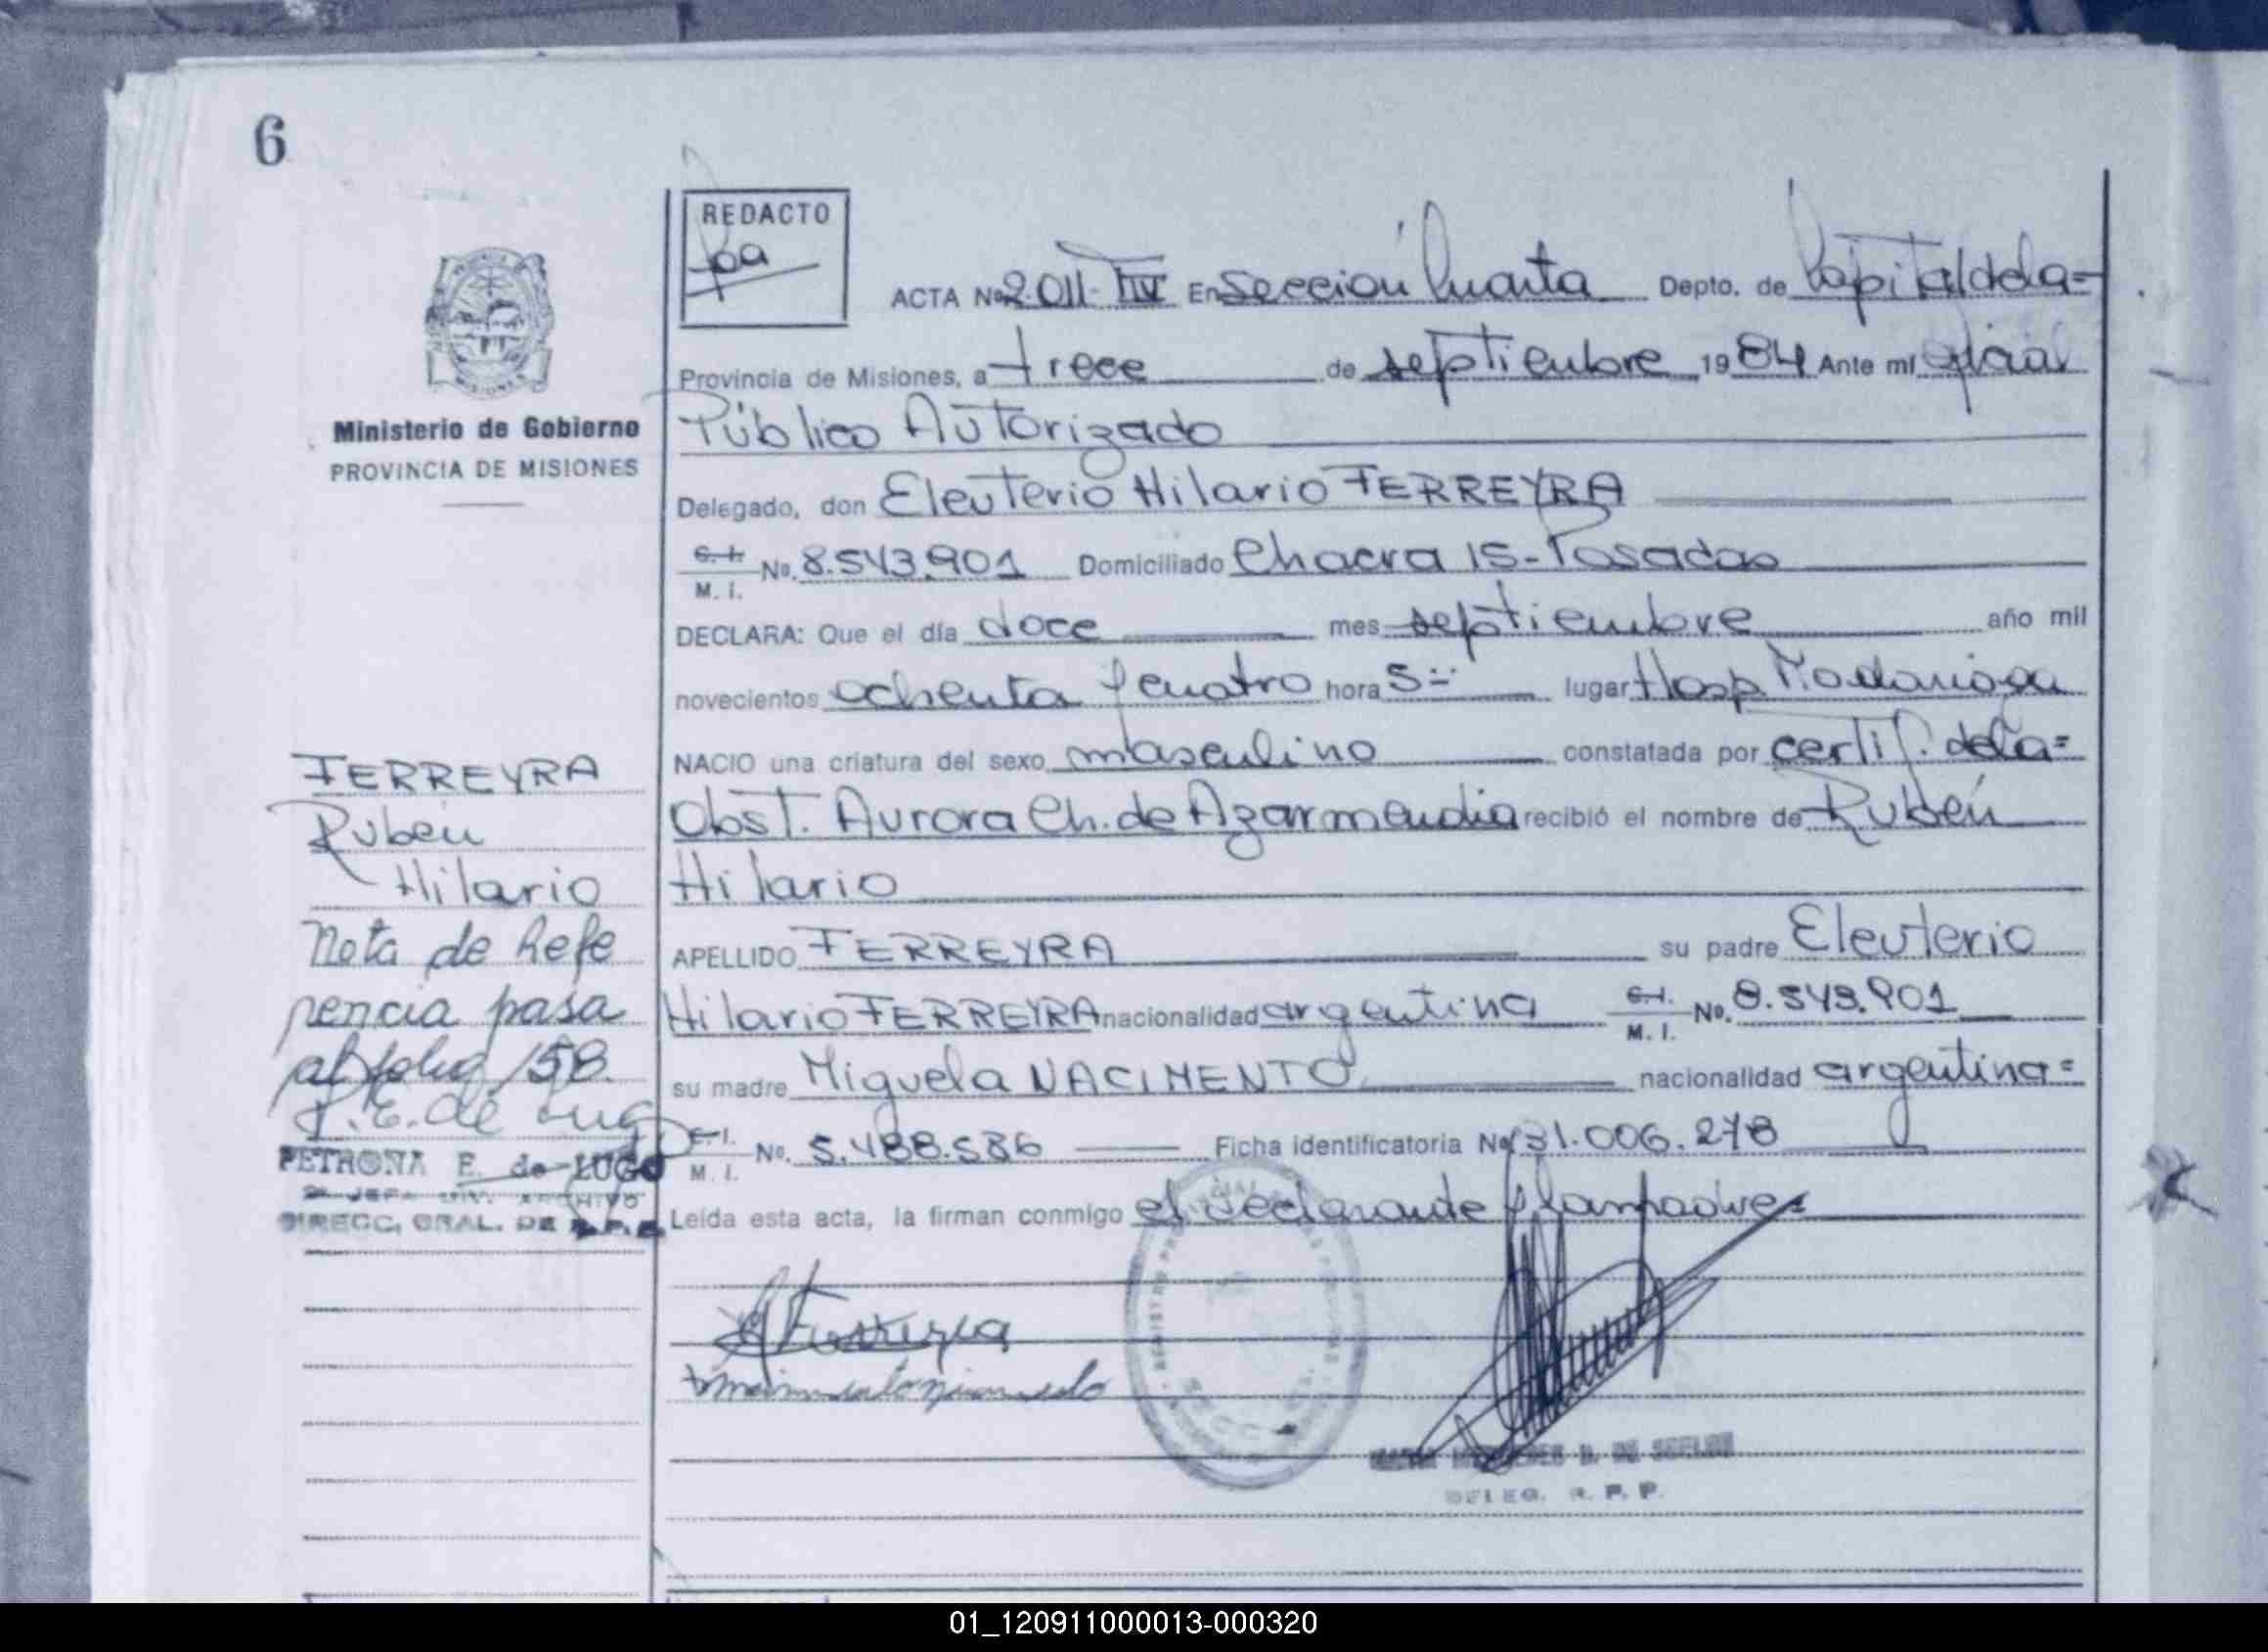 6
REDACTO
ACTA No 2.011- T IV En Sección Cuarta Depto. de Capital de la=
Provincia de Misiones, a trece de septiembre 1984 Ante mí oficial
Público Autorizado
Ministerio de Gobierno
PROVINCIA DE MISIONES
Delegado, don Eleuterio Hilario FERREYRA
C. I. No. 8.543.901 Domiciliado Chacra 15- Posadas
M. I.
DECLARA: Que el día doce mes septiembre año mil
novecientos ochenta y cuatro hora 5 lugar Hosp Madariaga
NACIO una criatura del sexo masculino constatada por certif. de la=
Obst. Aurora Ch. de Azarmendia recibió el nombre de Rubén
Hilario
APELLIDO FERREYRA su padre Eleuterio
Hilario FERREYRA nacionalidad argentina C. I. No. 8.543.901
M. I.
su madre Miguela NACIMENTO nacionalidad argentina=
C. I. No. 5.488.586 Ficha identificatoria No 31.006.278
M. I.
Leída esta acta, la firman conmigo el declarante y la madre=
FERREYRA
Rubén
Hilario
Nota de Refe
rencia pasa
al folio 158.
P. E. de Lugo
PETRONA E. de LUGO
JEFA DIV. ARCHIVO
DIRECC. GRAL. DE R.P.P.
DELEG. R. P. P.
01_120911000013-000320